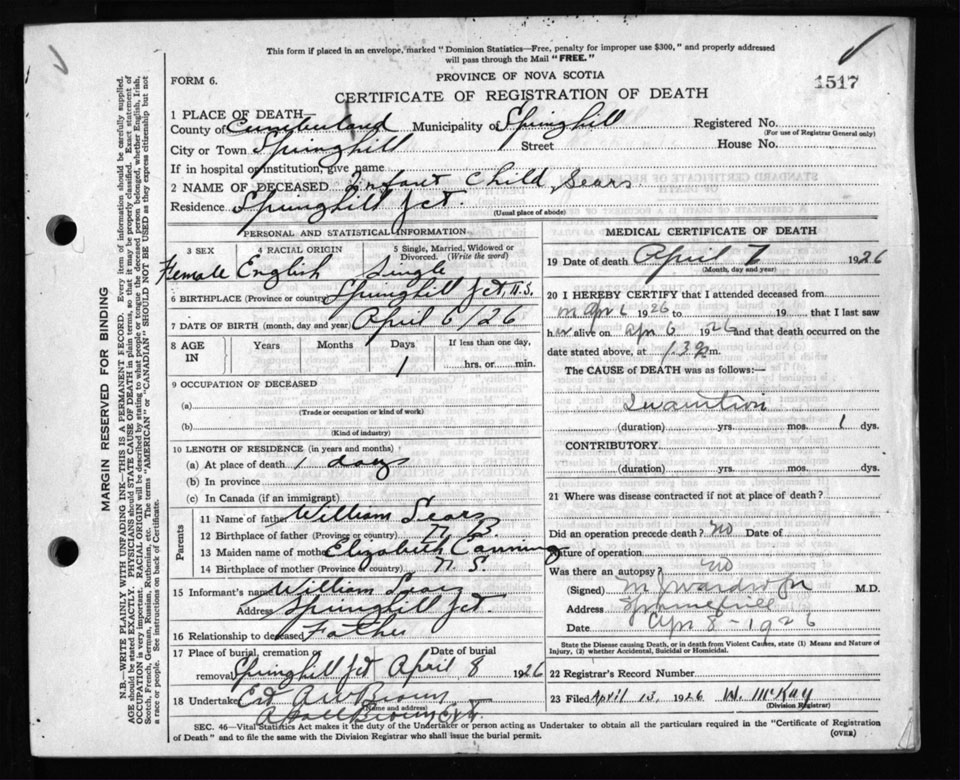 This form if placed in an envelope, marked "Dominion Statistics—Free, penalty for improper use $300," and properly addressed
will pass through the Mail "FREE."
FORM 6.
PROVINCE OF NOVA SCOTIA
1517
CERTIFICATE OF REGISTRATION OF DEATH
1 PLACE OF DEATH—
County of Cumberland Municipality of Springhill Registered No.
(For use of Registrar General only)
City or Town Springhill Street House No.
If in hospital or institution, give name
2 NAME OF DECEASED Infant Child Sears
Residence Springhill Jct.
(Usual place of abode)
PERSONAL AND STATISTICAL INFORMATION
3 SEX 4 RACIAL ORIGIN 5 Single, Married, Widowed or Divorced. (Write the word)
Female English Single
6 BIRTHPLACE (Province or country) Springhill Jct. N.S.
7 DATE OF BIRTH (month, day and year) April 6/26
8 AGE IN Years Months Days If less than one day,
1 hrs. or min.
9 OCCUPATION OF DECEASED
(a)
(Trade or occupation or kind of work)
(b)
(Kind of industry)
10 LENGTH OF RESIDENCE (in years and months)
(a) At place of death 1 days
(b) In province
(c) In Canada (if an immigrant)
Parents
11 Name of father William Sears
12 Birthplace of father (Province or country) N.B.
13 Maiden name of mother Elizabeth Canning
14 Birthplace of mother (Province or country) N.S.
15 Informant's name William Sears
Address Springhill Jct.
16 Relationship to deceased Father
17 Place of burial, cremation or removal Date of burial
Springhill Jct April 8 1926
18 Undertaker Brown
(Name and address)
MEDICAL CERTIFICATE OF DEATH
19 Date of death April 7 1926
(Month, day and year)
20 I HEREBY CERTIFY that I attended deceased from
Apr 6 1926 to 19 that I last saw
her alive on Apr 6 1926 and that death occurred on
date stated above, at m.
The CAUSE of DEATH was as follows:—
Inanition
(duration) yrs. mos. 1 dys.
CONTRIBUTORY
(duration) yrs. mos. dys.
21 Where was disease contracted if not at place of death?
Did an operation precede death? no Date of
Nature of operation
Was there an autopsy? no
(Signed) M.D.
Address Springhill
Date Apr 8-1926
State the Disease causing Death, or in death from Violent Causes, state (1) Means and Nature of
Injury, (2) whether Accidental, Suicidal or Homicidal.
22 Registrar's Record Number
23 Filed April 13, 1926 W. McKay
(Division Registrar)
SEC. 46—Vital Statistics Act makes it the duty of the Undertaker or person acting as Undertaker to obtain all the particulars required in the "Certificate of Registration
of Death" and to file the same with the Division Registrar who shall issue the burial permit.
(OVER)
MARGIN RESERVED FOR BINDING
N.B.—WRITE PLAINLY WITH UNFADING INK—THIS IS A PERMANENT RECORD. Every item of information should be carefully supplied.
AGE should be stated EXACTLY. PHYSICIANS should STATE CAUSE OF DEATH in plain terms, so that it may be properly classified. Exact statement of
OCCUPATION is very important. RACIAL ORIGIN will be described by stating to what people or tongue the deceased person belonged, whether English, Irish,
Scotch, French, German, Russian, Ruthenian, etc. The terms "AMERICAN" or "CANADIAN" SHOULD NOT BE USED as they express citizenship but not
a race or people. See instructions on back of Certificate.